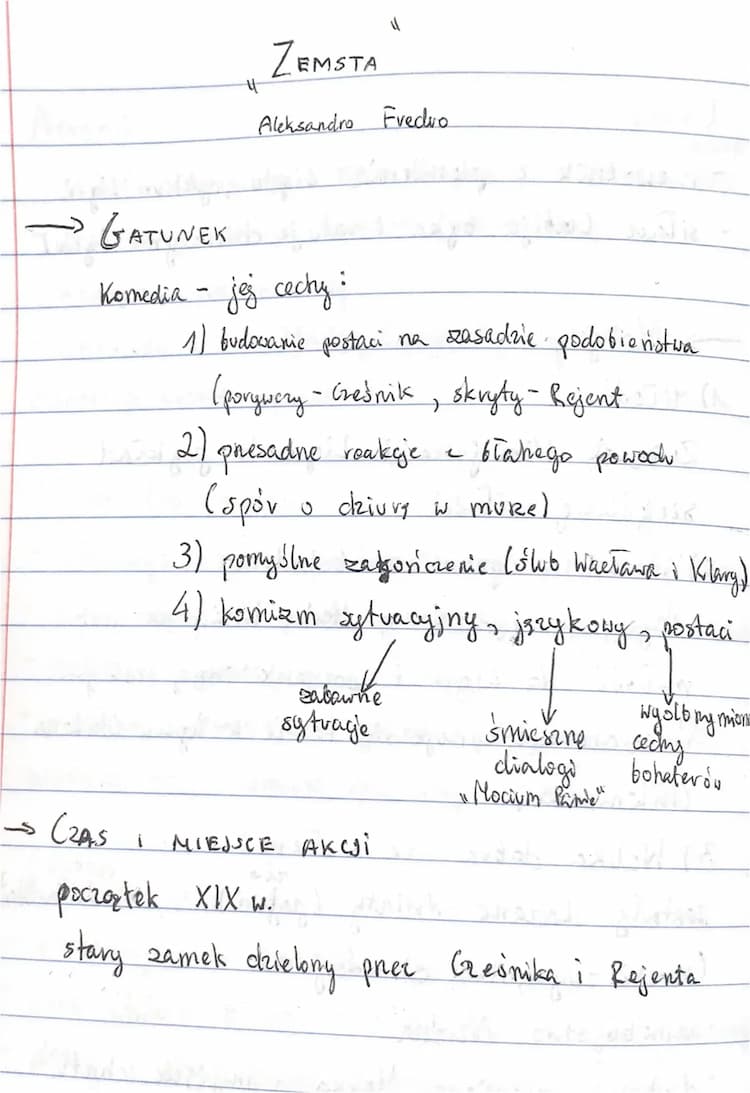 „Zemsta”
Aleksandro Fredro
→ GATUNEK
Komedia - jej cechy:
1) budowanie postaci na zasadzie podobieństwa
(porywczy - Cześnik, skryty - Rejent
2) przesadne reakcje z błahego powodu
(spór o dziurę w murze)
3) pomyślne zakończenie (ślub Wacława i Klary)
4) komizm sytuacyjny, językowy, postaci
zabawne sytuacje
śmieszne dialogi „Mocium Panie”
cechy bohaterów
→ CZAS i MIEJSCE AKCJI
początek XIX w.
stary zamek dzielony przez Cześnika i Rejenta